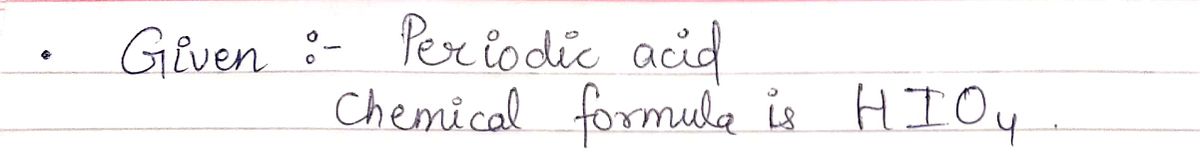 • Given :- Periodic acid
Chemical formula is HIO₄.